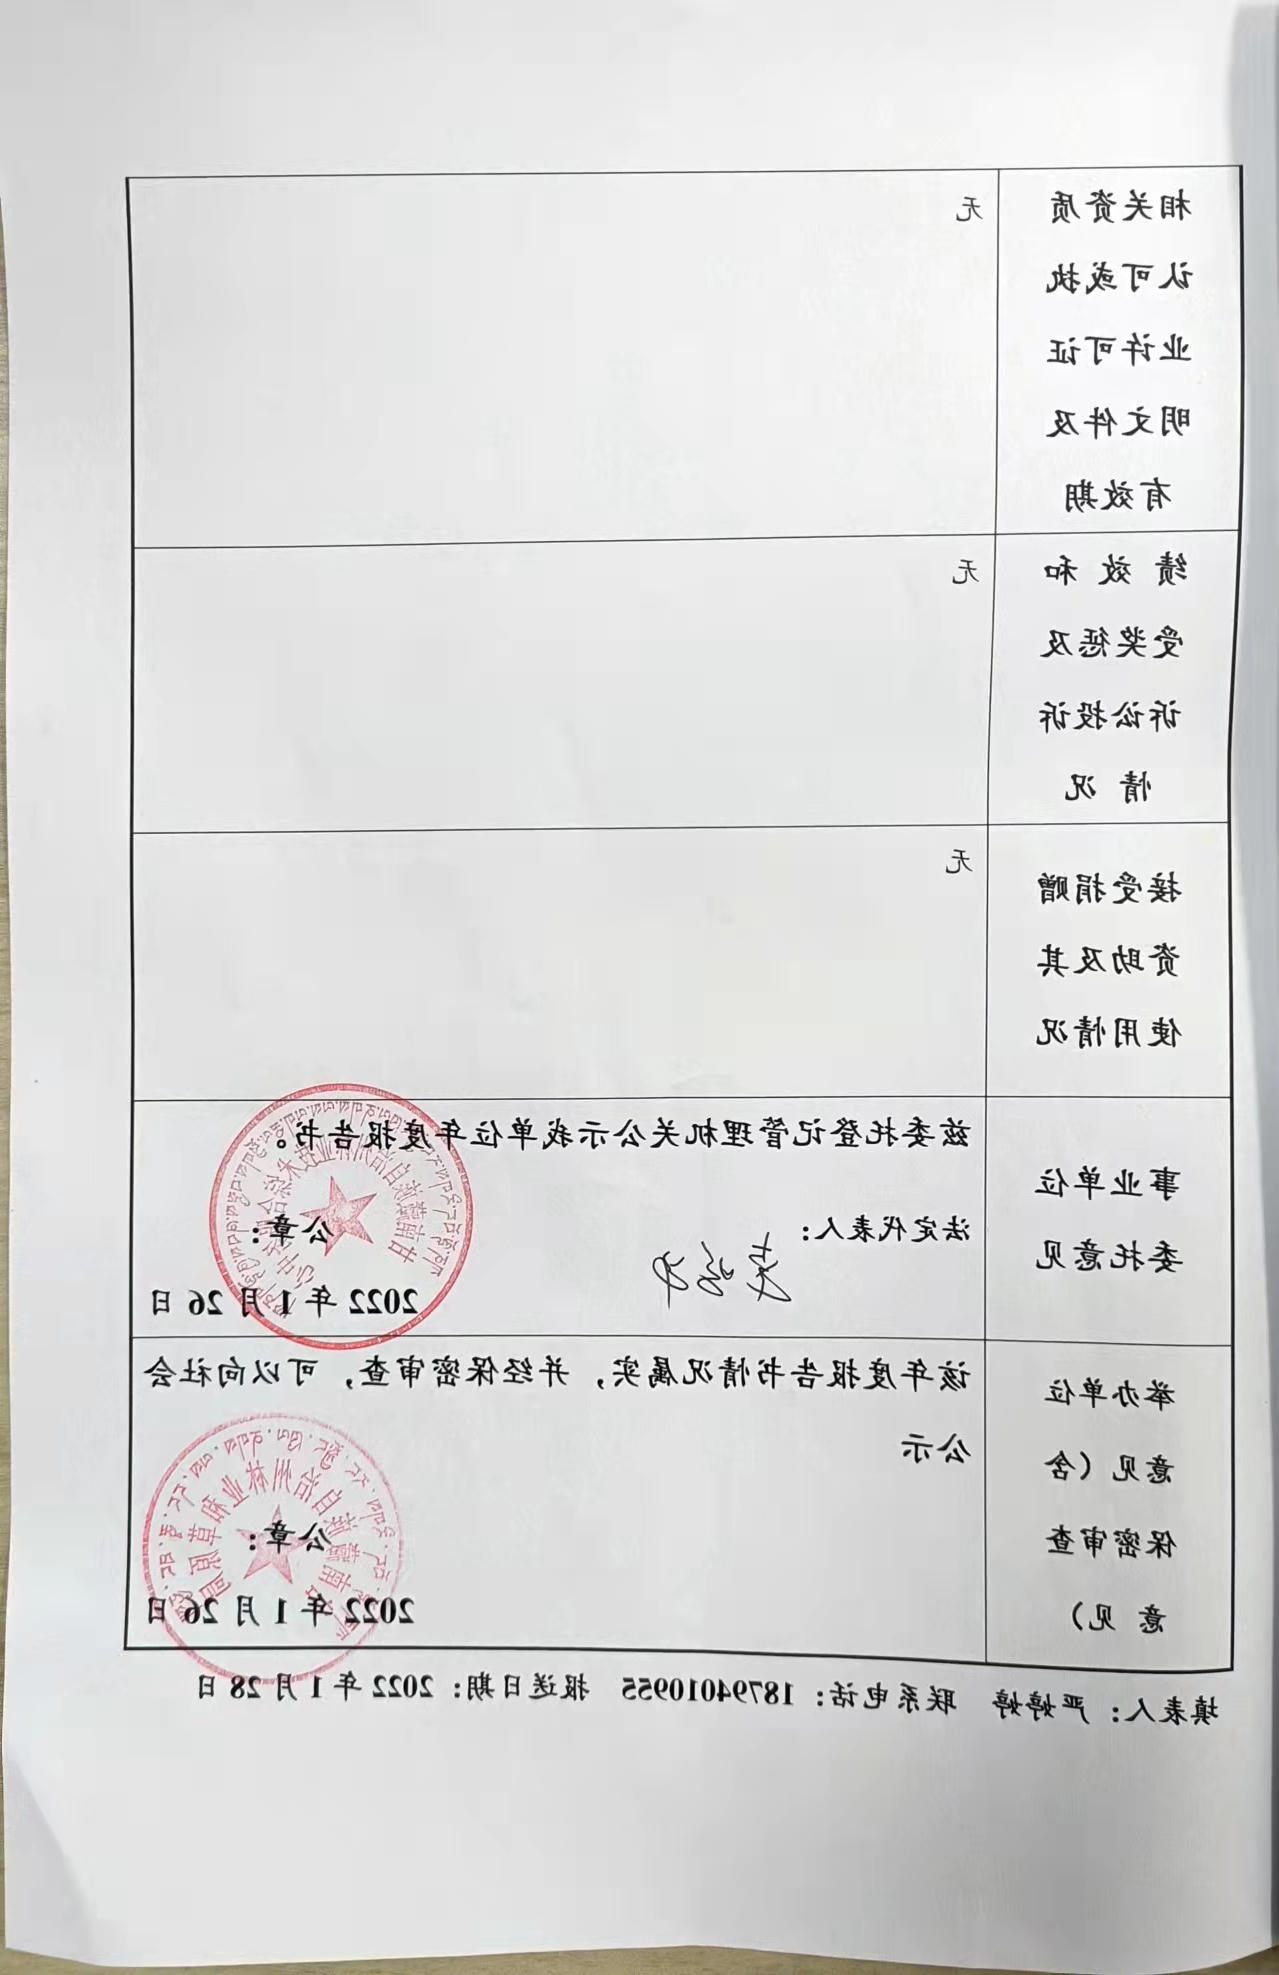 相关资质
认可或执
业许可证
明文件及
有效期
无
绩 效 和
受奖惩及
诉讼投诉
情 况
无
接受捐赠
资助及其
使用情况
无
事业单位
委托意见
兹委托登记管理机关公示我单位年度报告书。
法定代表人：
公章：
2022 年 1 月 26 日
举办单位
意见（含
保密审查
意 见）
该年度报告书情况属实，并经保密审查，可以向社会
公示
公章：
2022 年 1 月 26 日
甘南藏族自治州林业和草原局
填表人：严婷婷 联系电话：18794010955 报送日期：2022 年 1 月 28 日